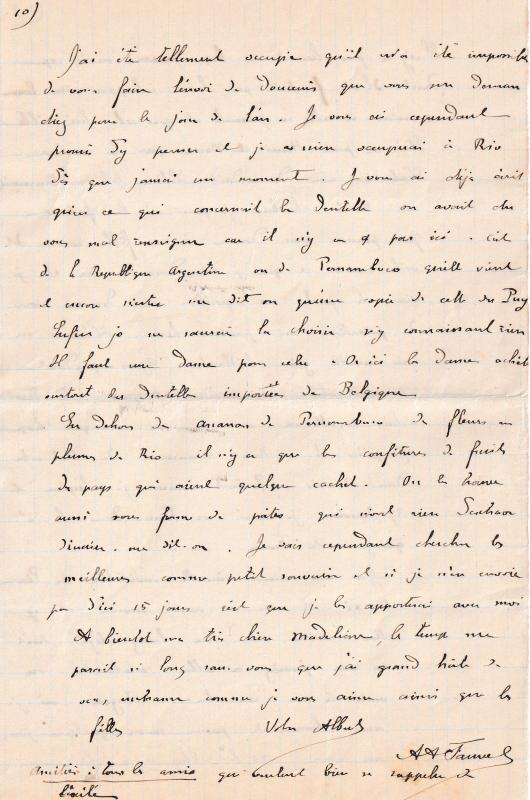 10)
J'ai été tellement occupé qu'il m'a été impossible
de vous faire l'envoi de douceurs que vous me deman
diez pour le jour de l'an. Je vous ai cependant
promis d'y penser et je m'en occuperai à Rio
dès que j'aurai un moment. Je vous ai déjà écrit
qu'en ce qui concernait la dentelle on avait du
vous mal renseigner car il n'y en a pas ici. C'est
de la République Argentine ou de Pernambuco qu'elle vient
et encore n'est-ce me dit on qu'une copie de celle du Puy
Enfin je ne saurais la choisir n'y connaissant rien
Il faut une dame pour cela. Or ici les dames achètent
surtout des dentelles importées de Belgique
En dehors des ananas de Pernambuco de fleurs en
plumes de Rio il n'y a que les confitures de fruits
du pays qui aient quelque cachet. On les trouve
aussi sous forme de pâtes qui n'ont rien
me dit-on. Je vais cependant chercher les
meilleures comme petit souvenir et si je n'en envoie
pas d'ici 15 jours c'est que je les apporterai avec moi
A bientôt ma très chère Madeleine, le temps me
parait si long sans vous que j'ai grand hâte de
vous comme je vous aime ainsi que les
filles Votre Albert
A A Fauvel
Amitiés à tous les amis qui veulent bien se rappeler de